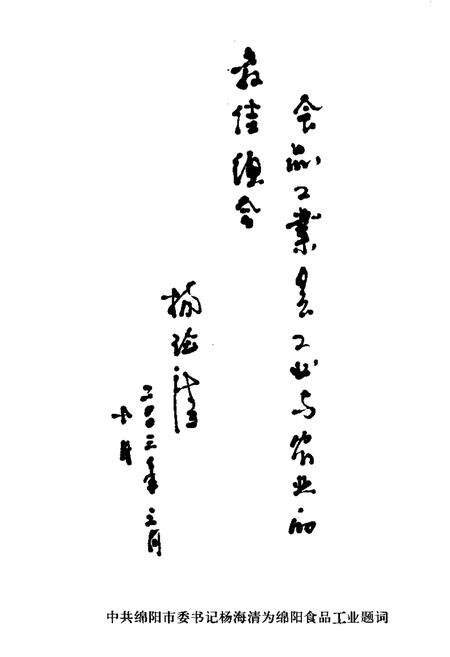 食品工業是工业与农业的
最佳结合
杨海清
二〇〇三年三月
十日
中共绵阳市委书记杨海清为绵阳食品工业题词